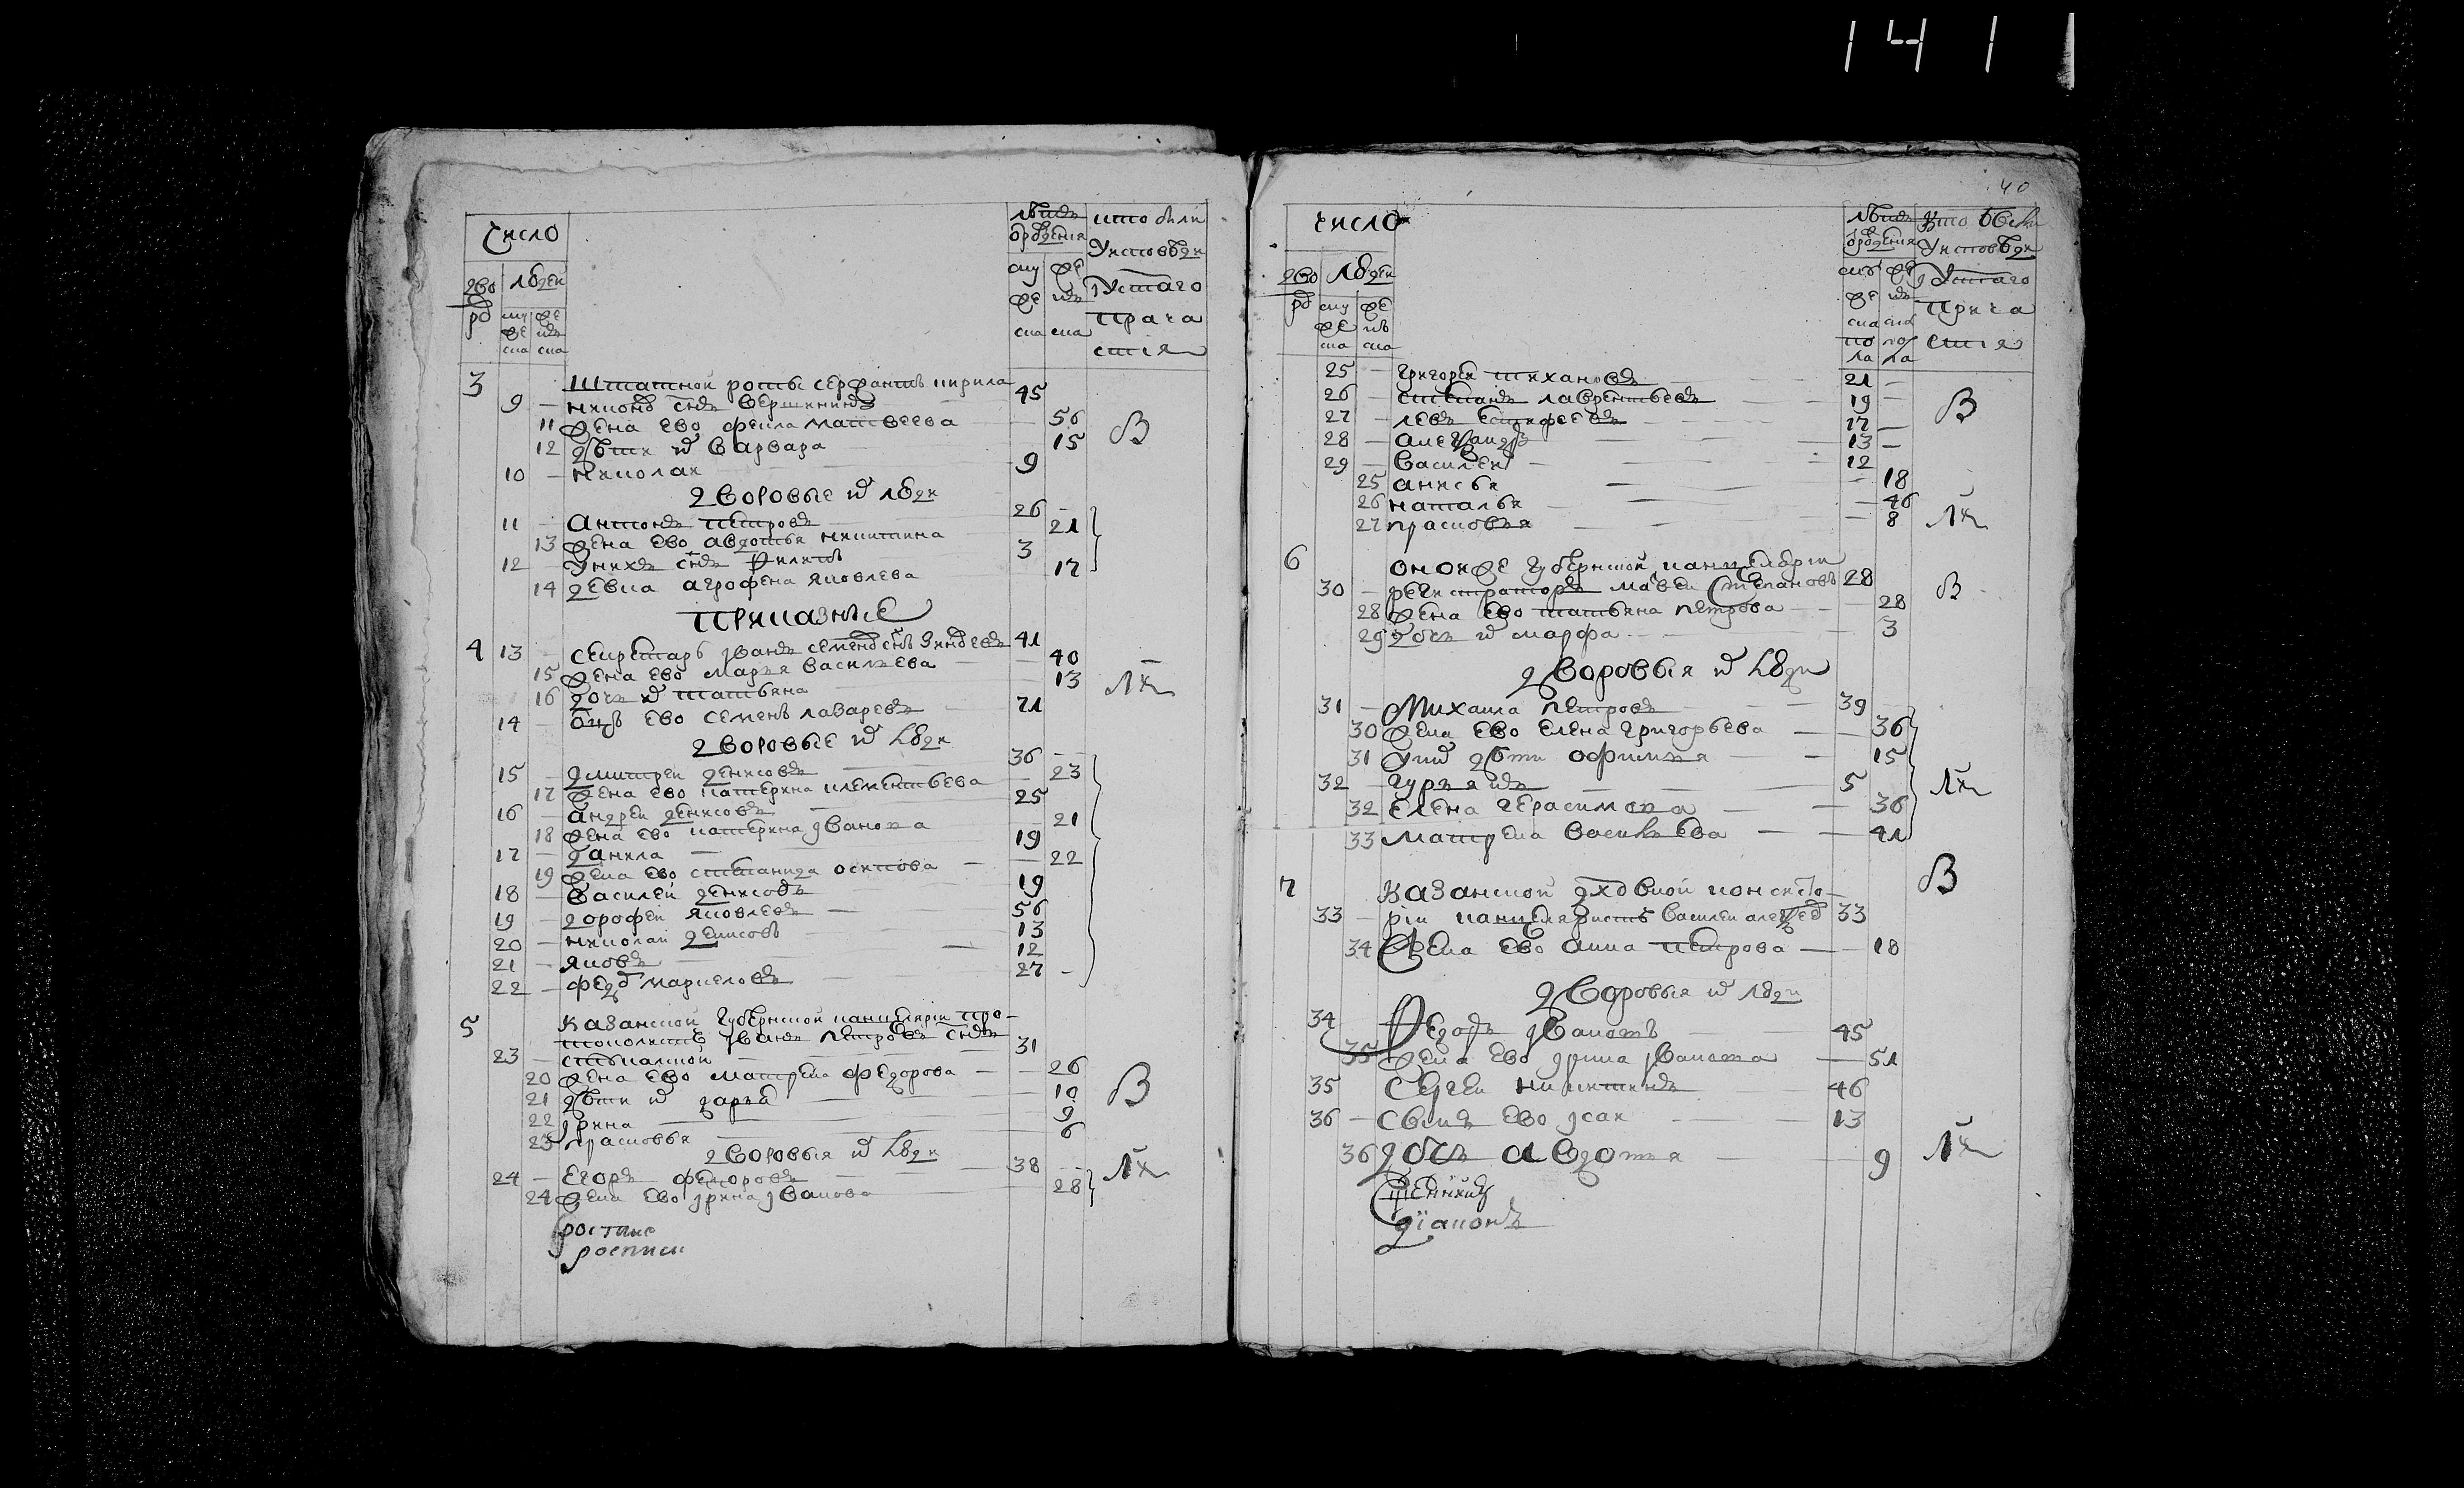 1411
число
дво
ръ
людей
му
же
ска
же
нс
ска
лѣтъ
от рожденія
му
же
ска
же
нс
ска
кто были
у исповѣди
и святаго
прича
стия
3
9 — Штатной роты сержантъ кирила
никоновъ снъ вершининъ 45
11 жена ево фекла матвеева — 56
12 дѣти их варвара — 15
10 — николаи — 9
В
дворовые их люди
11 — антонъ петровъ — 26
13 жена ево авдотья никитина — 21
12 — у них снъ филипъ — 3
14 девка агрофена яковлева — 17
приказные
4 13 — секретарь иванъ семеновъ снъ 41
15 жена ево марья васильева — 40
16 дочь их татьяна — 13
14 — оцъ ево семенъ лазаревъ — 71
дворовые их люди
15 — дмитреи денисовъ — 36
17 жена ево катерина клементьева — 23
16 — андреи денисовъ — 25
18 жена ево катерина иванова — 21
17 — данила — 19
19 жена ево степанида осипова — 22
18 — василей денисовъ — 19
19 — дорофеи яковлевъ — 56
20 — николаи денисовъ — 13
21 — яковъ — 12
22 — федоръ маркеловъ — 27
5 казанской губернской канцеляріи про
токолистъ иванъ петровъ снъ
23 — 31
20 жена ево матрена федорова — 26
21 дѣти их дарья — 10
22 ирина — 9
23 прасковья — 6
В
дворовыя их люди
24 — егоръ федоровъ — 38
24 жена ево ирина иванова — 28
роспис
росписи
40
число
дво
ръ
людеи
му
же
ска
же
нс
ска
лѣтъ
от рожденія
муж
же
ска
по
ла
же
нс
ска
по
ла
кто были
у исповѣди
и святаго
прича
стия
25 — григореи тихановъ — 21
26 — степанъ лаврентьевъ — 19
27 — левъ — 17
28 — александръ — 13
29 — василеи — 12
25 анисья — 18
26 наталья — 46
27 прасковья — 8
В
6 оной же губернской канцеляріи
30 — регистраторъ матвеи степановъ 28
28 жена ево татьяна петрова — 28
29 дочь их марфа — 3
В
дворовыя их люди
31 — михаила петровъ — 39
30 жена ево елена григорьева — 36
31 у них дѣти офимья — 15
32 гурьянъ — 5
32 елена герасимова — 36
33 матрена васильева — 41
7 казанской духовной консисто
33 — ріи канцеляристъ василеи 33
34 жена ево анна петрова — 18
В
дворовыя их люди
34 федоръ ивановъ 45
35 жена ево ирина иванова — 51
35 сергеи никитинъ 46
36 — сынъ ево исаи — 13
36 дочь авдотья — 9
священникъ
діаконъ